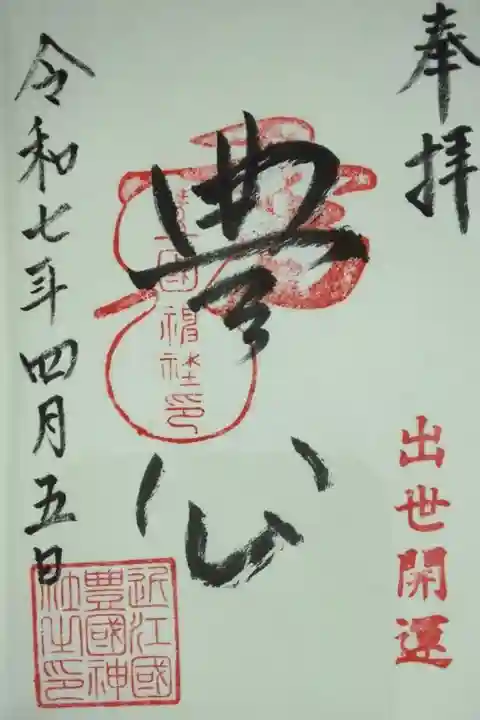 奉拝
出世開運
豊公
豊国神社印
令和七年四月五日
近江國
豊國神
社之印